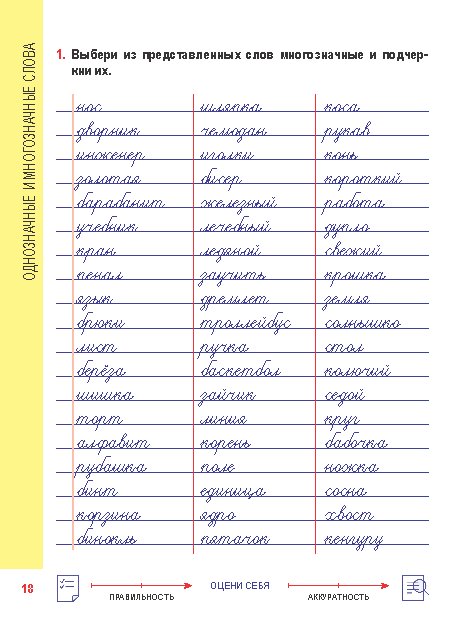 ОДНОЗНАЧНЫЕ И МНОГОЗНАЧНЫЕ СЛОВА
1. Выбери из представленных слов многозначные и подчер-
кни их.
нос шляпка коса
дворник чемодан рукав
инженер иголки конь
золотая бисер короткий
барабанит железный работа
учебник лечебный дупло
кран ледяной свежий
пенал заучить крошка
язык дремлет земля
брюки троллейбус солнышко
лист ручка стол
берёза баскетбол колючий
шишка зайчик седой
торт линия круг
алфавит корень бабочка
рубашка поле ножка
бинт единица сосна
корзина ядро хвост
бинокль пятачок кенгуру
18
ПРАВИЛЬНОСТЬ
ОЦЕНИ СЕБЯ
АККУРАТНОСТЬ